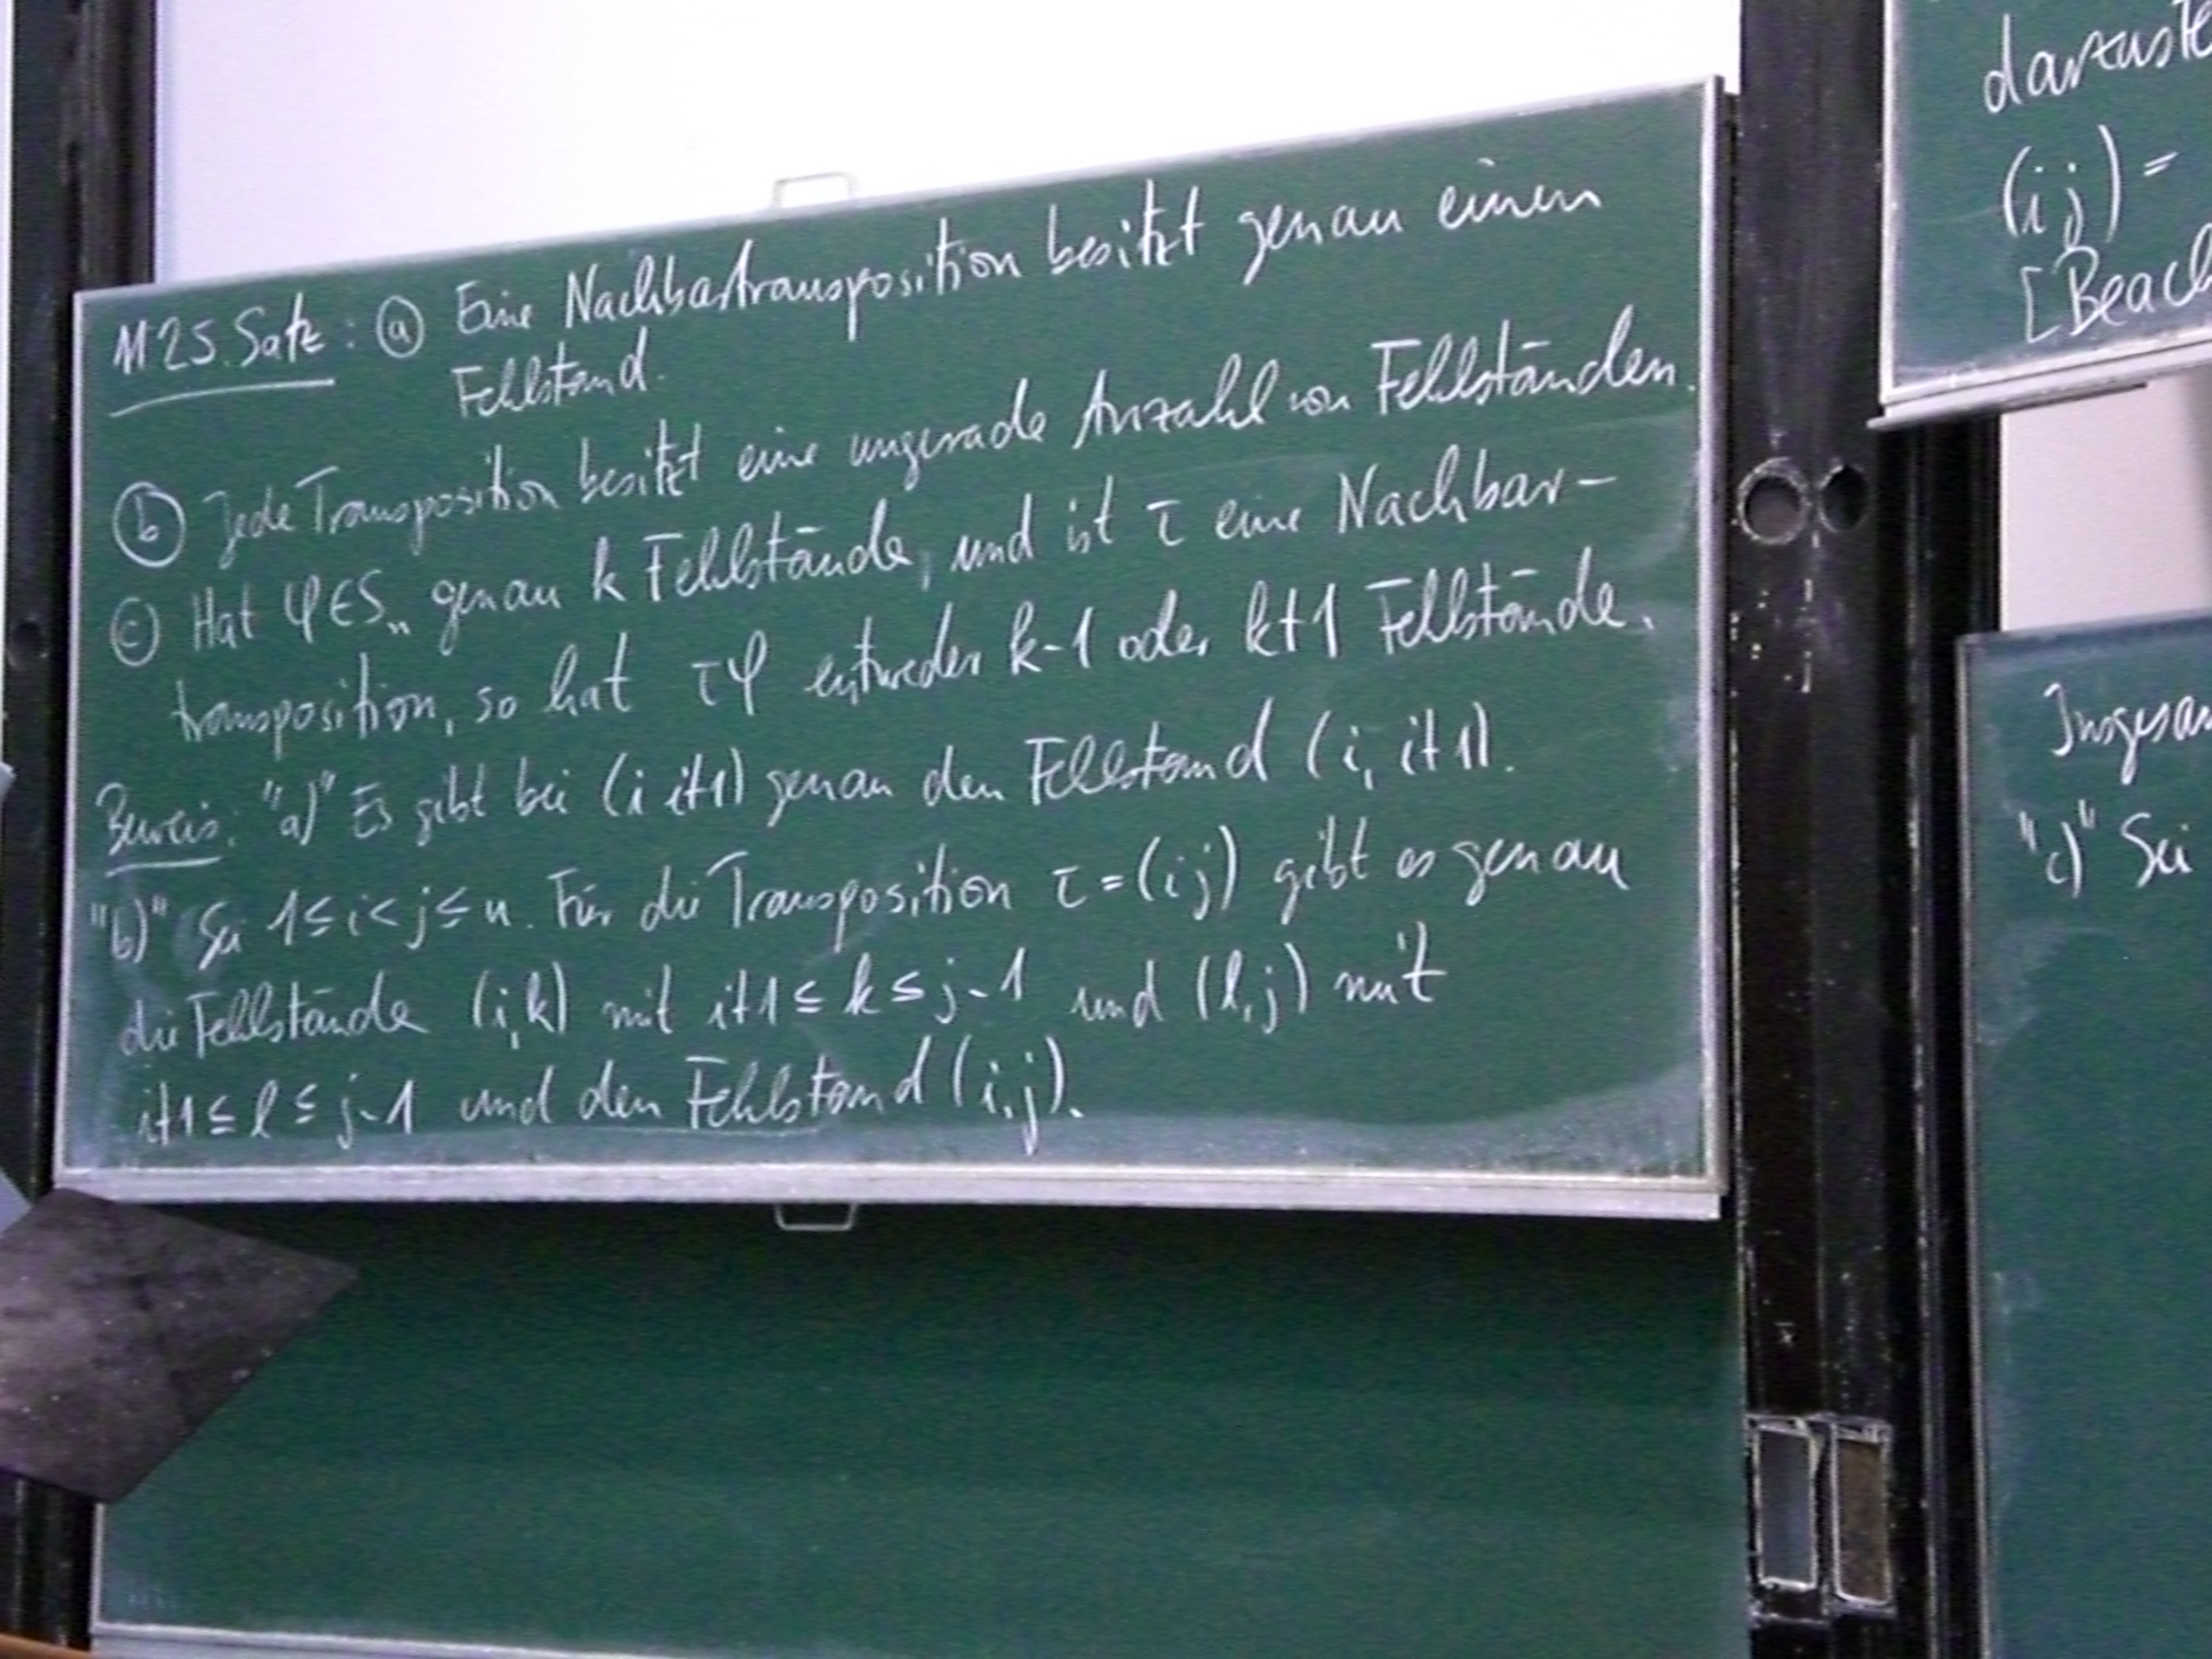 M25. Satz: ⓐ Eine Nachbartransposition besitzt genau einen
Fehlstand.
ⓑ Jede Transposition besitzt eine ungerade Anzahl von Fehlständen.
ⓒ Hat φ∈Sₙ genau k Fehlstände, und ist τ eine Nachbar-
transposition, so hat τφ entweder k-1 oder k+1 Fehlstände.
Beweis: "a)" Es gibt bei (i i+1) genau den Fehlstand (i, i+1).
"b)" Sei 1≤i<j≤n. Für die Transposition τ=(i j) gibt es genau
die Fehlstände (i,k) mit i+1≤k≤j-1 und (l,j) mit
i+1≤l≤j-1 und den Fehlstand (i,j).
(i j) =
"c)" Sei